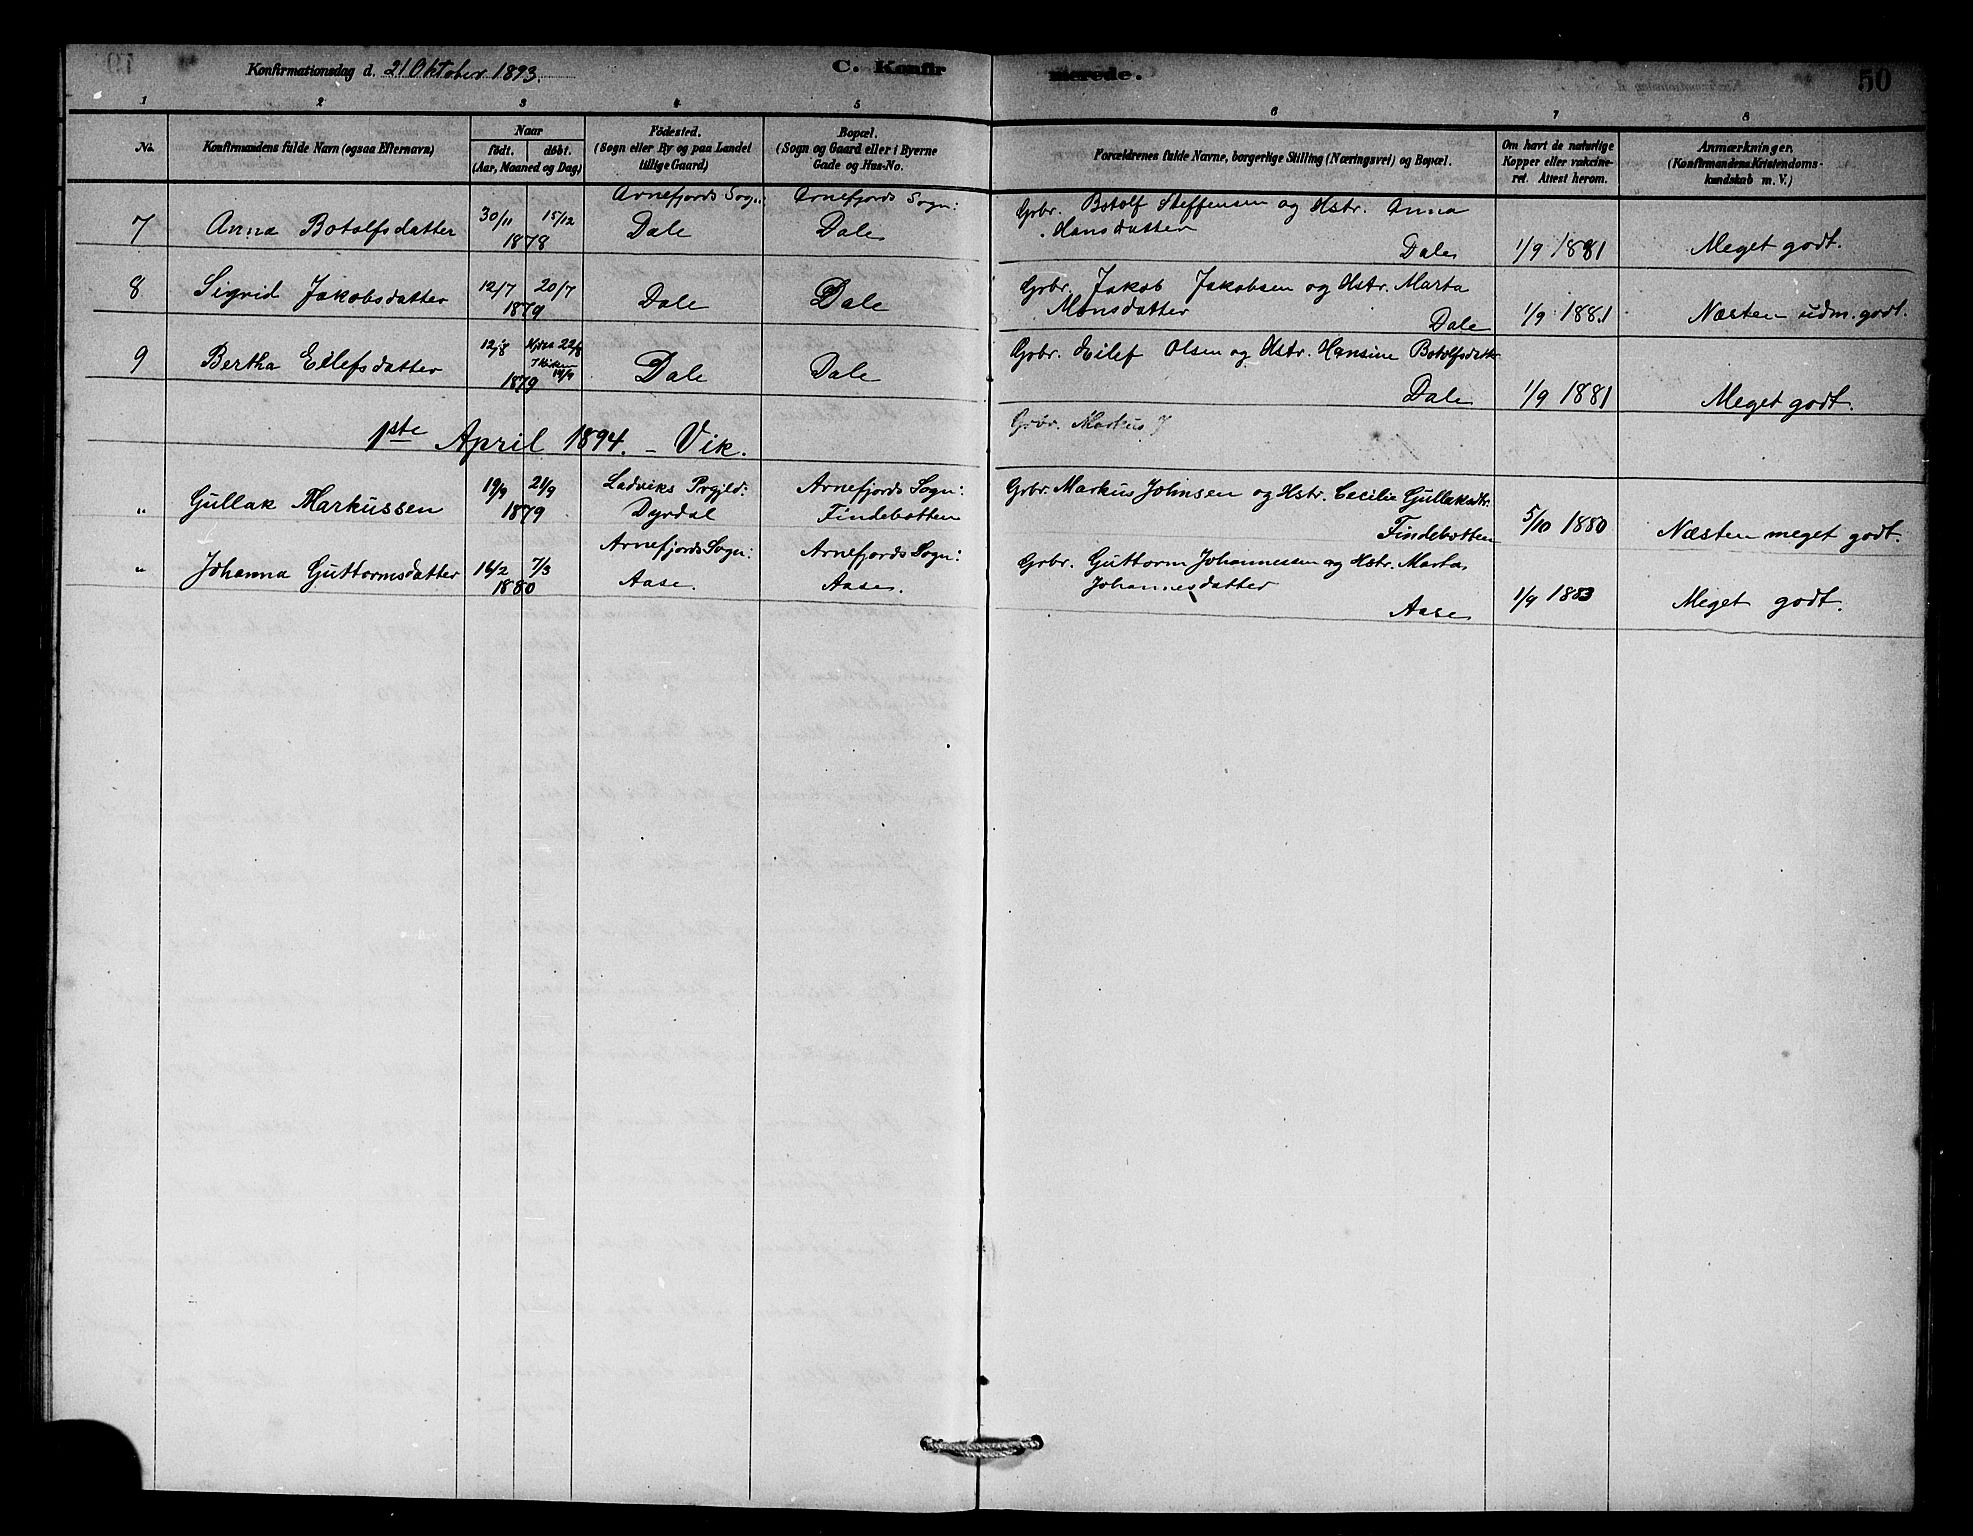 Konfirmationsdag d. 21 Oktober 1893.
C. Konfirmerede.
50
1 2 3 4 5 6 7 8
No.
Konfirmandens fulde Navn (ogsaa Efternavn)
Naar
født. døbt.
(Aar, Maaned og Dag)
Fødested.
(Sogn eller By og paa Landet
tillige Gaard)
Bopæl.
(Sogn og Gaard eller i Byerne
Gade og Hus-No.
Forældrenes fulde Navne, borgerlige Stilling (Næringsvei) og Bopæl.
Om havt de naturlige
Kopper eller vakcine-
ret. Attest herom.
Anmærkninger.
(Konfirmandens Kristendoms-
kundskab m. V.)
7 Anna Botolfsdatter 30/11 15/12 1878
Arnefjords Sogn:
Dale
Arnefjords Sogn:
Dale
Grbr. Botolf Steffensen og Hstr. Anna
Hansdatter
Dale 1/9 1881 Meget godt.
8 Sigrid Jakobsdatter 12/7 20/7 1879 Dale Dale
Grbr. Jakob Jakobsen og Hstr. Marta
Monsdatter
Dale 1/9 1881 Næsten udm. godt.
9 Bertha Eilefsdatter 12/8 Hjem 22/8
I Kirken 14/9
1879 Dale Dale
Grbr. Eilef Olsen og Hstr. Hansine Botolfsdatter
Dale 1/9 1881 Meget godt.
Grbr. Markus J
1ste April 1894. - Vik.
" Gullak Markussen 19/9 21/9 1879
Ladviks Prgjld:
Dyrdal
Arnefjords Sogn:
Findebotten
Grbr. Markus Johnsen og Hstr. Cecilie Gullaksdtr.
Findebotten 5/10 1880 Næsten meget godt.
" Johanna Guttormsdatter 16/2 7/3 1880
Arnefjords Sogn:
Aase.
Arnefjords Sogn:
Aase.
Grbr. Guttorm Johannessen og Hstr. Marta
Johannesdatter
Aase 1/9 1883 Meget godt.